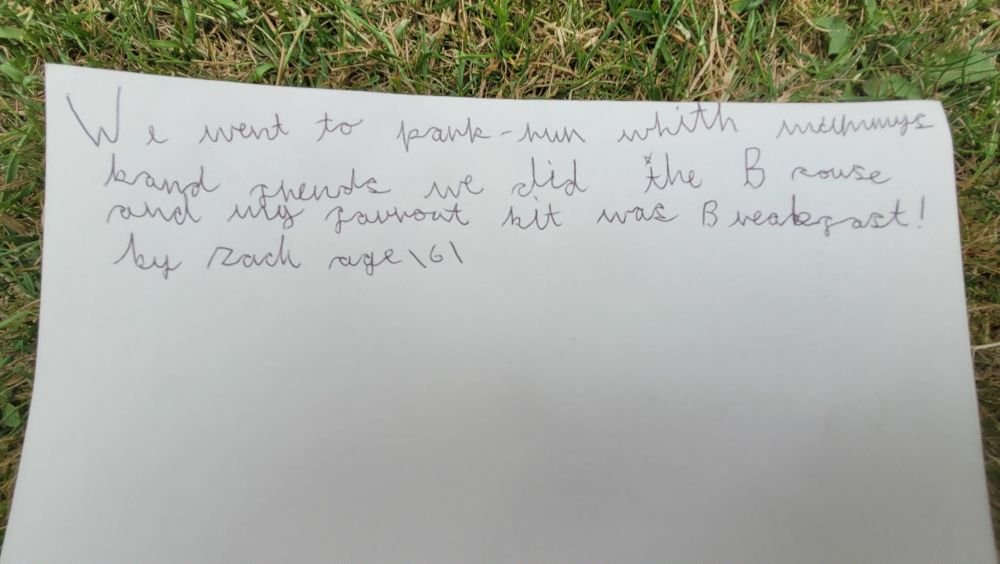 We went to park-run whith mummys
band frends we did the B couse
and my favrout bit was Breakfast!
by zach age \6\